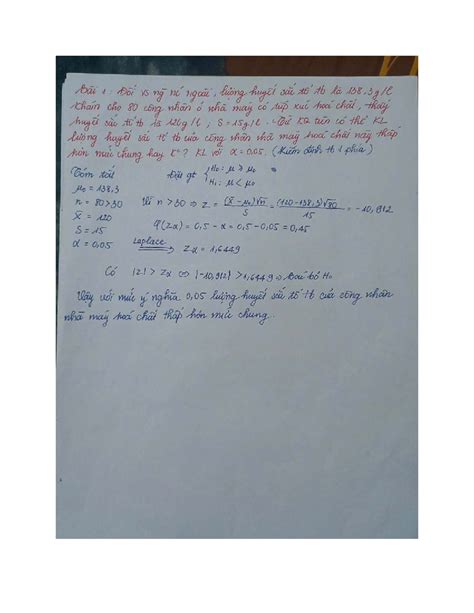 Bài 1: Đối vs ng` nc ngoài, lượng huyết sắc tố tb là 138,3g/l
Khám cho 80 công nhân ở nhà máy có tiếp xúc hoá chất, thấy
huyết sắc tố tb là 120g/l, S = 15g/l. Từ KQ trên có thể KL
lượng huyết sắc tố tb của công nhân nhà máy hoá chất này thấp
hơn mức chung hay k°? KL với α = 0,05. (Kiểm định tb 1 phía)
Tóm tắt
Đặt gt { H₀: μ ≥ μ₀
H₁: μ < μ₀
μ₀ = 138,3
n = 80 > 30
Vì n > 30 ⇒ z = (x̄ - μ₀)√n / S = (120 - 138,3)√80 / 15 = -10,912
x̄ = 120
S = 15
φ(Zα) = 0,5 - α = 0,5 - 0,05 = 0,45
α = 0,05
Laplace ⟹ Zα = 1,6449
Có |z| > Zα ⇔ |-10,912| > 1,6449 ⇒ Bác bỏ H₀
Vậy với mức ý nghĩa 0,05 lượng huyết sắc tố tb của công nhân
nhà máy hoá chất thấp hơn mức chung.